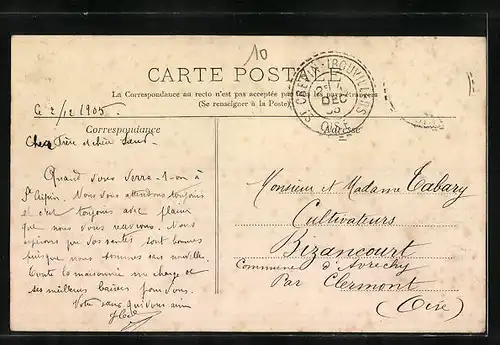 10
CARTE POSTALE
La Correspondance au recto n'est pas acceptée par tous les pays étrangers
(Se renseigner à la Poste)
Ce 2/12 1905
Correspondance
Adresse
ST CRÉPIN-IBOUVILLERS
DEC
OISE
Cher Frère et chère Sœur
Quand vous verra-t-on à
St Crépin. Nous vous attendons toujours
et c'est toujours avec plaisir
que nous vous reverrons. Nous
espérons que vos santés sont bonnes
puisque nous sommes sans nouvelle.
Toute la maisonnée me charge de
ses meilleurs baisers pour vous.
Votre sœur qui vous aime
Monsieur et Madame Tabary
Cultivateurs
Bizancourt
Commune d'Avrechy
Par Clermont
(Oise)